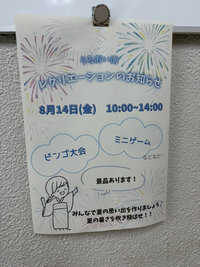 レクリエーションのお知らせ
8月14日(金) 10:00~14:00
ビンゴ大会
ミニゲーム
などなど…
景品あります！
みんなで夏の思い出を作りましょう♪
夏の暑さを吹き飛ばせ！！